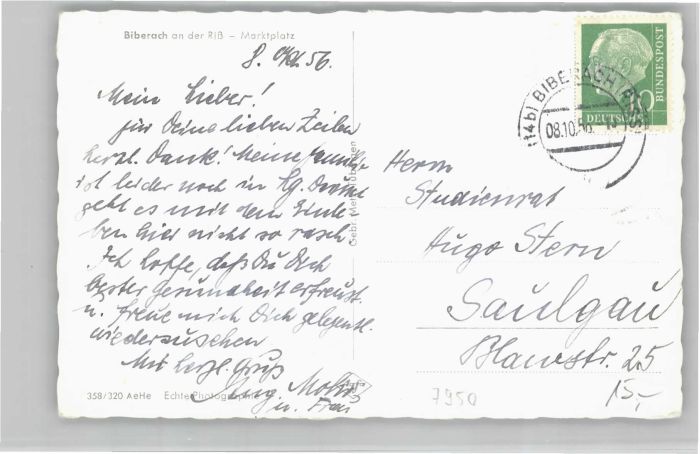 Biberach an der Riß – Marktplatz
8. Okt. 56.
Mein Lieber!
für Deine lieben Zeilen
herzl. Dank! Meine Familie
ist leider noch in Sg. Damit
geht es mit dem Einle-
ben hier nicht so rasch.
Ich hoffe, daß Du Dich
bester Gesundheit erfreust
u. freue mich Dich gelegentl.
wiederzusehen
Mit herzl. Gruß
Aug.
u. Frau
358/320 AeHe Echte Photographie
Gebr. Metz, Tübingen
(14b) BIBERACH (RISS)
08.10.56
DEUTSCHE
BUNDESPOST
10
Herrn
Studienrat
Hugo Stern
Saulgau
Blauwstr. 25
7950
15,-